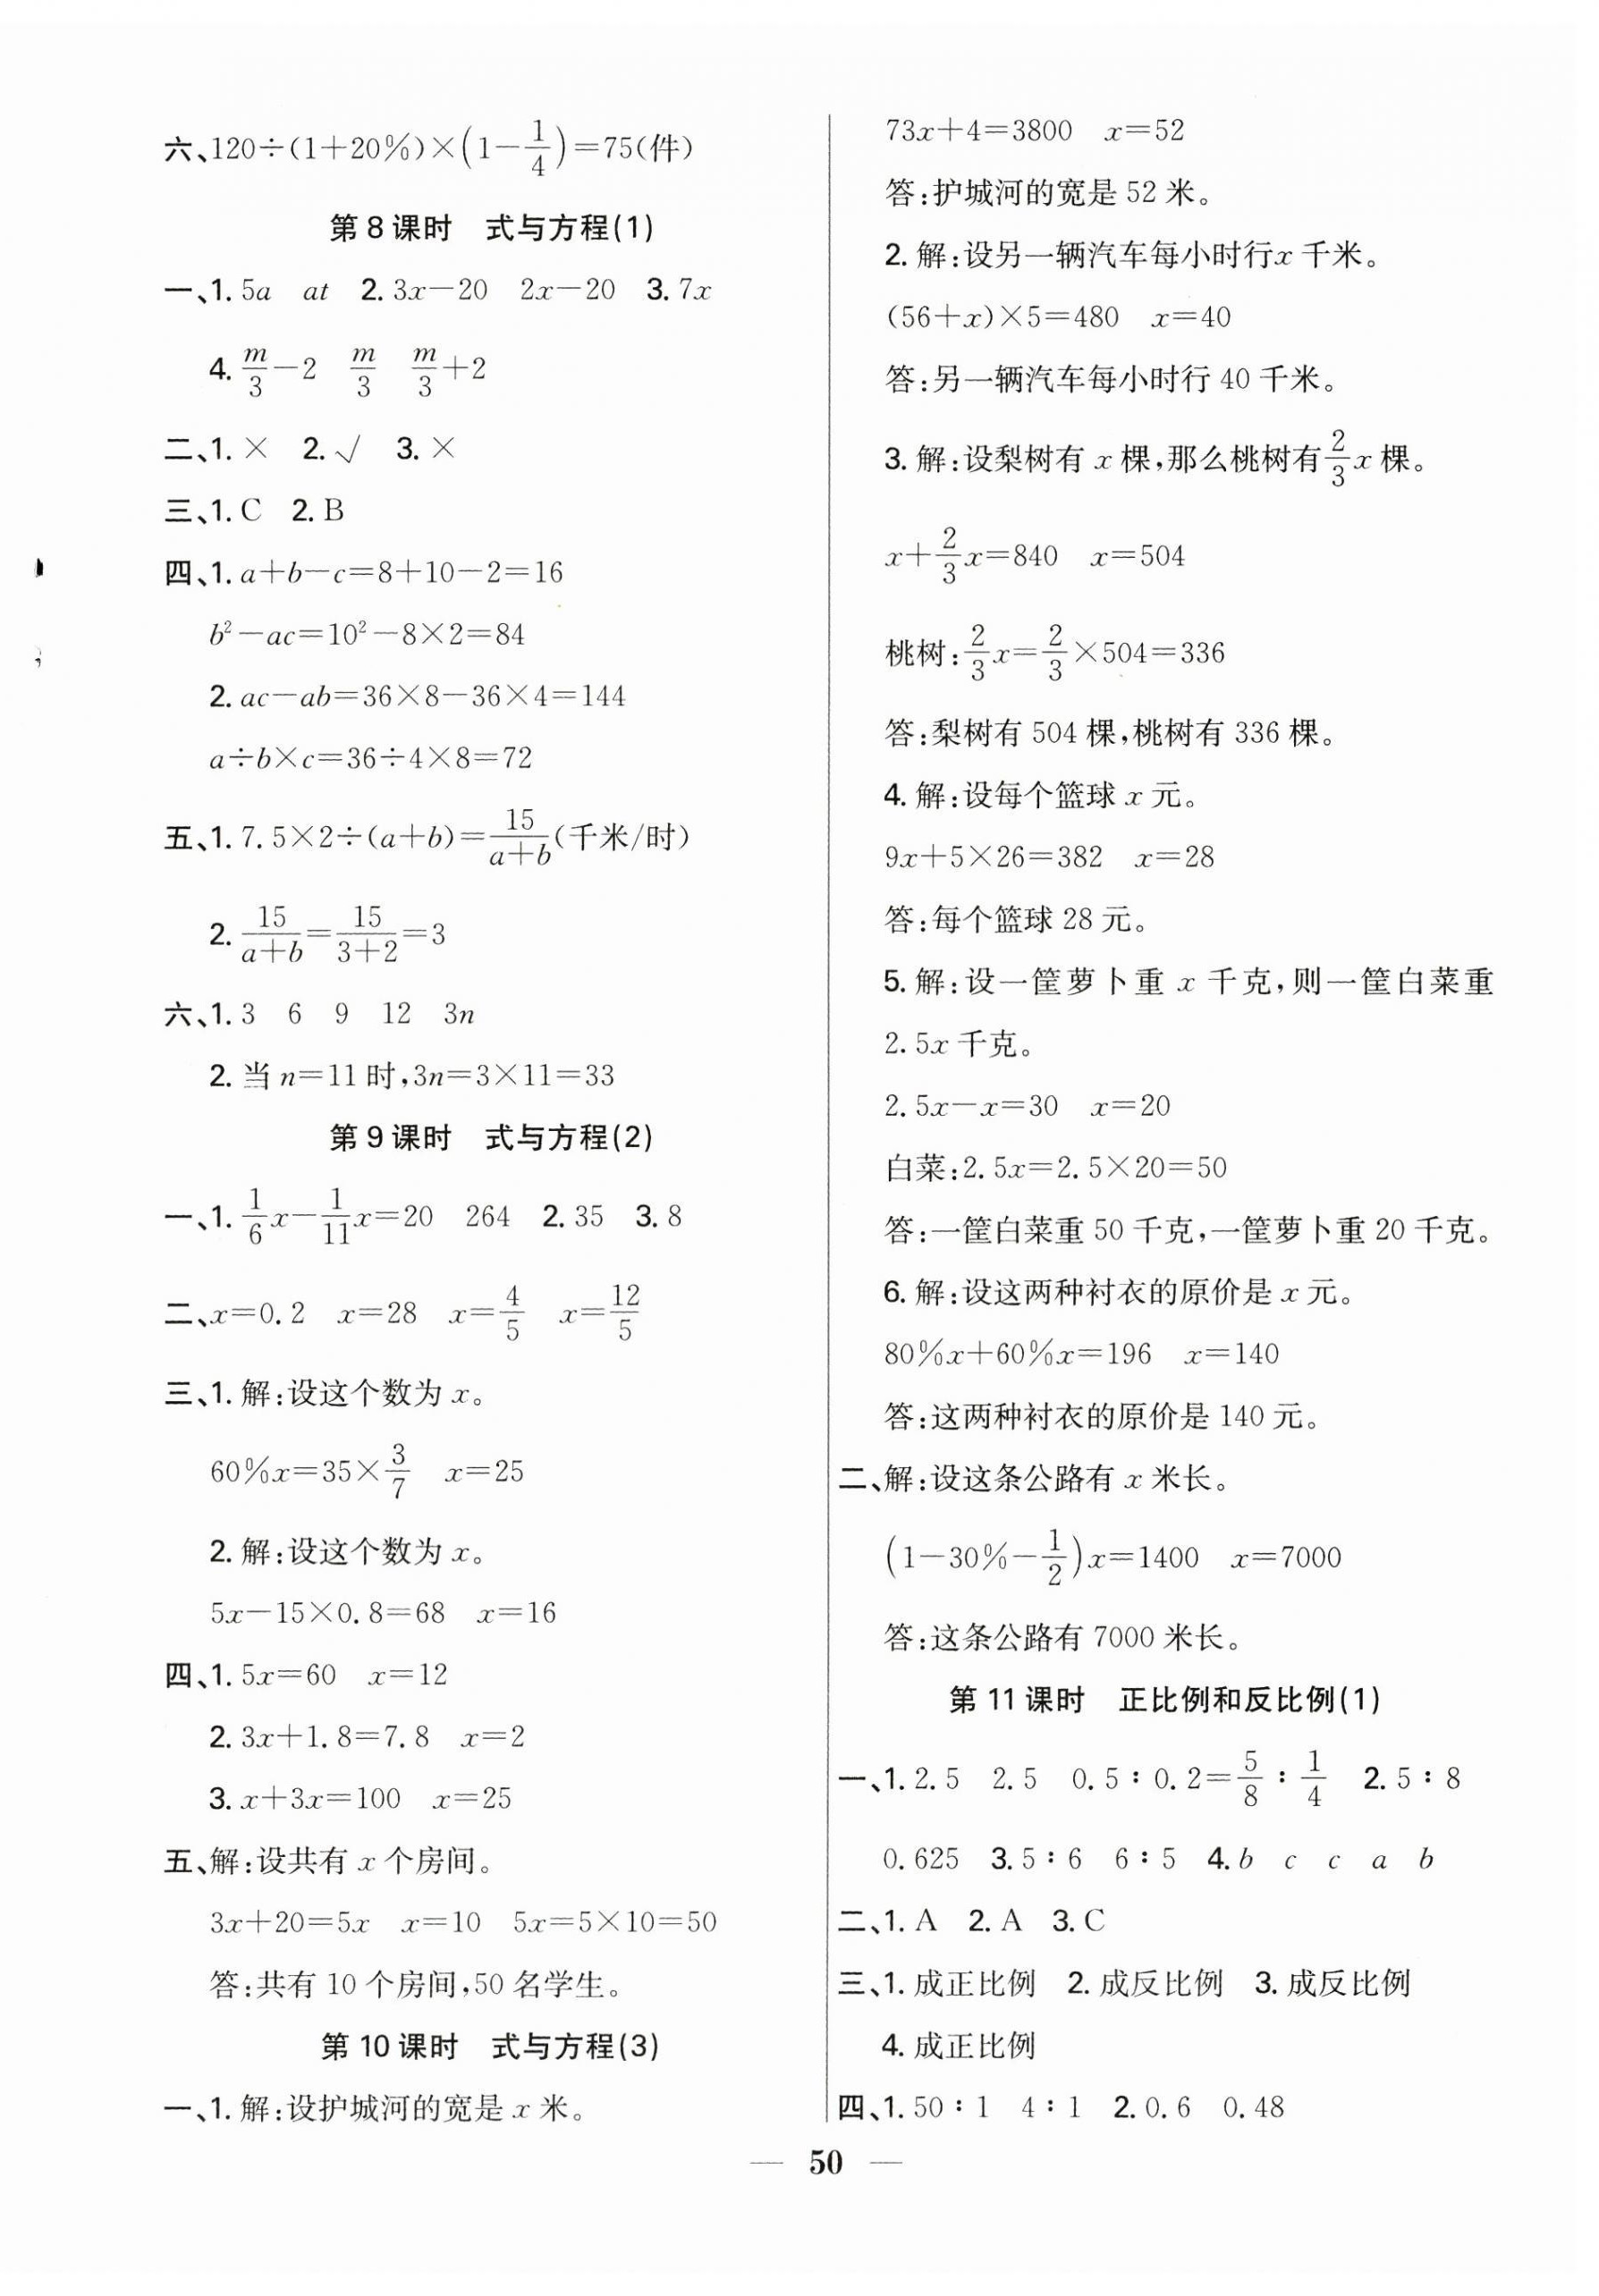 六、120÷(1+20%)×(1-1/4)=75(件)
第8课时 式与方程(1)
一、1. 5a at 2. 3x-20 2x-20 3. 7x
4. m/3-2 m/3 m/3+2
二、1. × 2. √ 3. ×
三、1. C 2. B
四、1. a+b-c=8+10-2=16
b²-ac=10²-8×2=84
2. ac-ab=36×8-36×4=144
a÷b×c=36÷4×8=72
五、1. 7.5×2÷(a+b)=15/(a+b)(千米/时)
2. 15/(a+b)=15/(3+2)=3
六、1. 3 6 9 12 3n
2. 当n=11时,3n=3×11=33
第9课时 式与方程(2)
一、1. 1/6x-1/11x=20 264 2. 35 3. 8
二、x=0.2 x=28 x=4/5 x=12/5
三、1. 解:设这个数为x。
60%x=35×3/7 x=25
2. 解:设这个数为x。
5x-15×0.8=68 x=16
四、1. 5x=60 x=12
2. 3x+1.8=7.8 x=2
3. x+3x=100 x=25
五、解:设共有x个房间。
3x+20=5x x=10 5x=5×10=50
答:共有10个房间,50名学生。
第10课时 式与方程(3)
一、1. 解:设护城河的宽是x米。
73x+4=3800 x=52
答:护城河的宽是52米。
2. 解:设另一辆汽车每小时行x千米。
(56+x)×5=480 x=40
答:另一辆汽车每小时行40千米。
3. 解:设梨树有x棵,那么桃树有2/3x棵。
x+2/3x=840 x=504
桃树:2/3x=2/3×504=336
答:梨树有504棵,桃树有336棵。
4. 解:设每个篮球x元。
9x+5×26=382 x=28
答:每个篮球28元。
5. 解:设一筐萝卜重x千克,则一筐白菜重
2.5x千克。
2.5x-x=30 x=20
白菜:2.5x=2.5×20=50
答:一筐白菜重50千克,一筐萝卜重20千克。
6. 解:设这两种衬衣的原价是x元。
80%x+60%x=196 x=140
答:这两种衬衣的原价是140元。
二、解:设这条公路有x米长。
(1-30%-1/2)x=1400 x=7000
答:这条公路有7000米长。
第11课时 正比例和反比例(1)
一、1. 2.5 2.5 0.5∶0.2=5/8∶1/4 2. 5∶8
0.625 3. 5∶6 6∶5 4. b c c a b
二、1. A 2. A 3. C
三、1. 成正比例 2. 成反比例 3. 成反比例
4. 成正比例
四、1. 50∶1 4∶1 2. 0.6 0.48
— 50 —